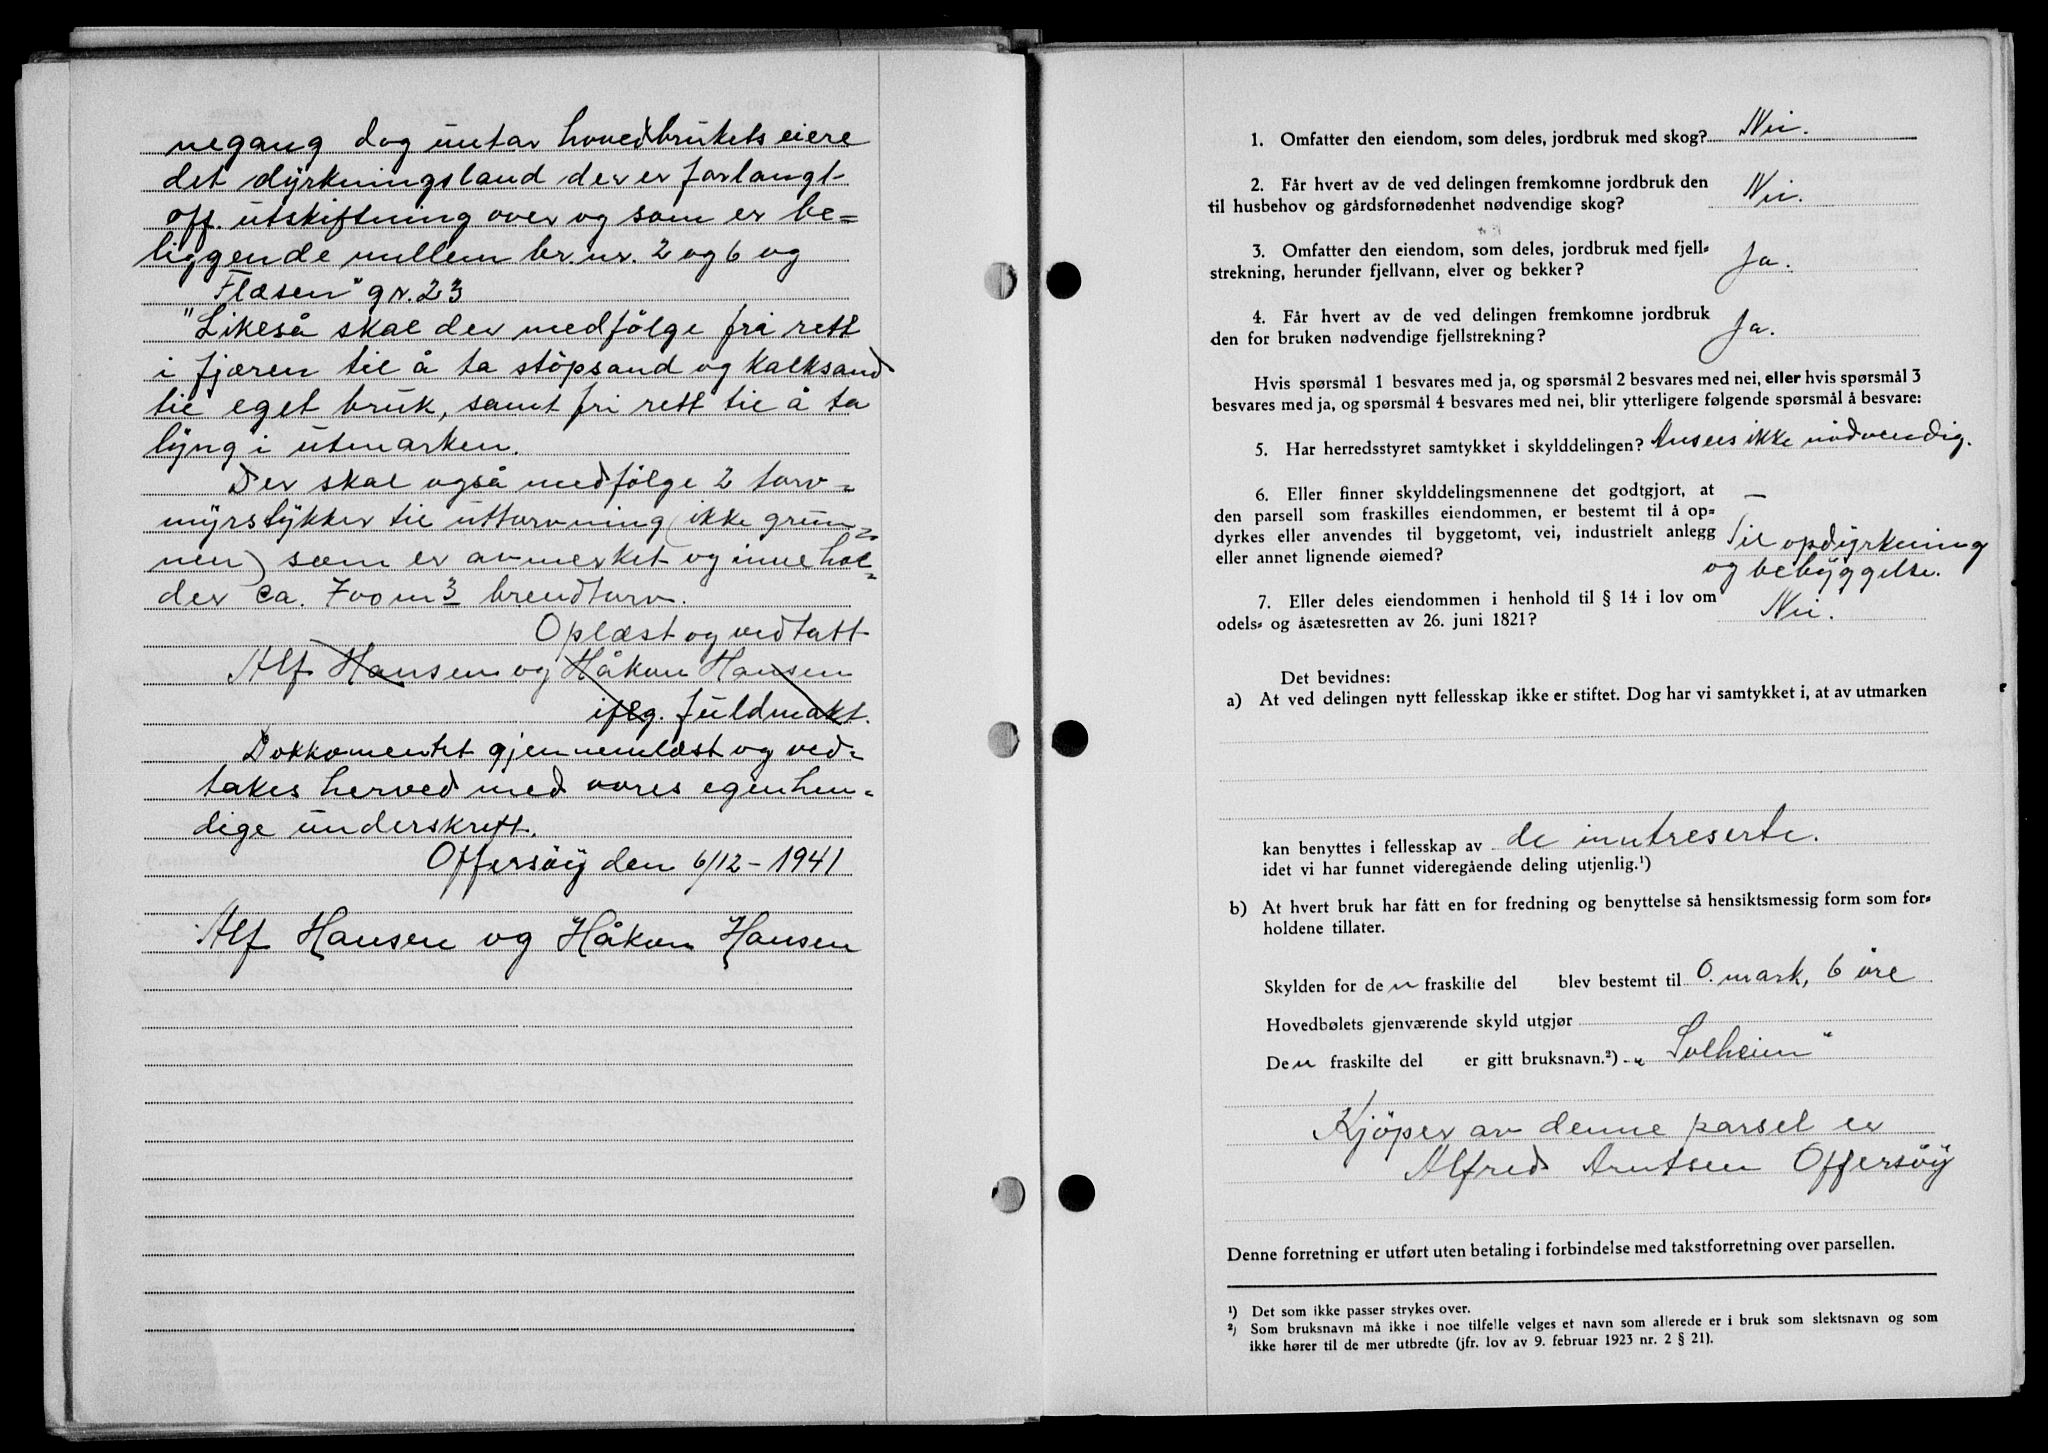 negang dog untar hovedbrukets eiere
det dyrkningsland der er forlangt
off. utskiftning over og som er be=
liggende mellem br.nr. 2 og 6 og
Flæsen" gr. 23
"Likeså skal der medfölge fri rett
i fjæren til å ta stöpsand og kalksand
til eget bruk, samt fri rett til å ta
lyng i utmarken.
Der skal også medfölge 2 torv=
myrstykker til uttorvning (ikke grun=
nen) som er avmerket og innehol=
der ca. 700 m3 brendtorv.
Oplæst og vedtatt
Alf Hansen og Håkon Hansen
iflg. fuldmakt.
Dokkomentet gjennemlæst og ved=
takes herved med vores egenhen=
dige underskrift.
Offersöy den 6/12 - 1941
Alf Hansen og Håkon Hansen
1. Omfatter den eiendom, som deles, jordbruk med skog? Nei.
2. Får hvert av de ved delingen fremkomne jordbruk den
til husbehov og gårdsfornødenhet nødvendige skog? Nei.
3. Omfatter den eiendom, som deles, jordbruk med fjell=
strekning, herunder fjellvann, elver og bekker? Ja.
4. Får hvert av de ved delingen fremkomne jordbruk
den for bruken nødvendige fjellstrekning? Ja.
Hvis spørsmål 1 besvares med ja, og spørsmål 2 besvares med nei, eller hvis spørsmål 3
besvares med ja, og spørsmål 4 besvares med nei, blir ytterligere følgende spørsmål å besvare:
5. Har herredsstyret samtykket i skylddelingen? Ansees ikke nödvendig.
6. Eller finner skylddelingsmennene det godtgjort, at —
den parsell som fraskilles eiendommen, er bestemt til å op=
dyrkes eller anvendes til byggetomt, vei, industrielt anlegg Til opdyrkning
eller annet lignende øiemed? og bebyggelse.
7. Eller deles eiendommen i henhold til § 14 i lov om
odels= og åsætesretten av 26. juni 1821? Nei.
Det bevidnes:
a) At ved delingen nytt fellesskap ikke er stiftet. Dog har vi samtykket i, at av utmarken
kan benyttes i fellesskap av de inntreserte.
idet vi har funnet videregående deling utjenlig.¹)
b) At hvert bruk har fått en for fredning og benyttelse så hensiktsmessig form som for=
holdene tillater.
Skylden for den fraskilte del blev bestemt til 0 mark, 6 öre
Hovedbølets gjenværende skyld utgjør
Den fraskilte del er gitt bruksnavn.²) „Solheim"
Kjöper av denne parsel er
Alfred Arntsen Offersöy
Denne forretning er utført uten betaling i forbindelse med takstforretning over parsellen.
¹) Det som ikke passer strykes over.
²) Som bruksnavn må ikke i noe tilfelle velges et navn som allerede er i bruk som slektsnavn og som
ikke hører til de mer utbredte (jfr. lov av 9. februar 1923 nr. 2 § 21).